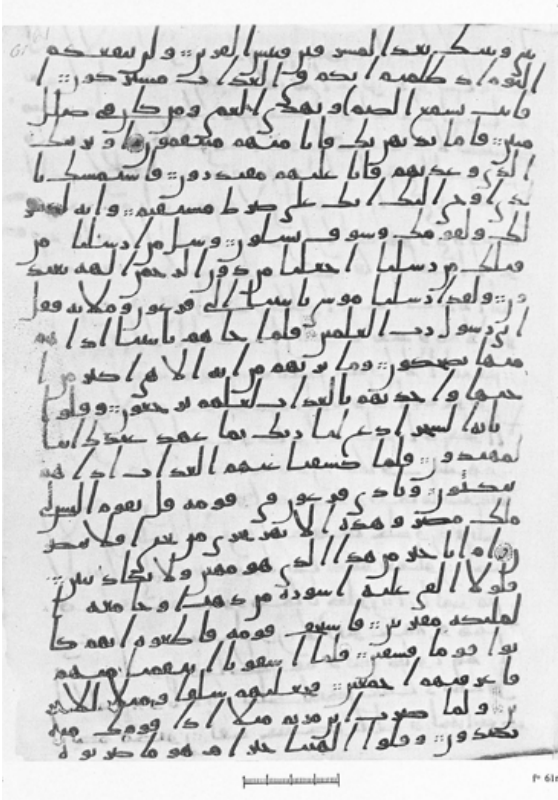 61
ني وبينك بعد المشرقين فبيس القرين ولن ينفعكم
اليوم اذ ظلمتم انكم في العذاب مشتركون ا
فانت تسمع الصم او تهدي العمي ومن كان في ضلل
مبين فاما نذهبن بك فانا منهم منتقمون او نرينك
الذي وعدنهم فانا عليهم مقتدرون فاستمسك با
لذي اوحي اليك انك على صرط مستقيم وانه لذكر
لك ولقومك وسوف تسلون وسل من ارسلنا من
قبلك من رسلنا اجعلنا من دون الرحمن الهه يعبد
ون ولقد ارسلنا موسى بايتنا الى فرعون وملايه فقل
اني رسول رب العلمين فلما جاهم بايتنا اذا هم
منها يضحكون وما نريهم من ايه الا هي اكبر من ا
ختها واخذنهم بالعذاب لعلهم يرجعون وقلوا
يايه السحر ادع لنا ربك بما عهد عندك اننا
لمهتدون فلما كشفنا عنهم العذاب اذا هم
ينكثون ونادى فرعون في قومه قل يقوم اليس لي
ملك مصر وهذه الانهر تجري من تحتي افلا تبصر
ون ام انا خير من هذا الذي هو مهين ولا يكاد يبين
فلولا القي عليه اسورة من ذهب او جا معه ا
لملئكه مقترنين فاستخف قومه فاطعوه انهم كا
نوا قوما فسقين فلما اسفونا انتقمنا منهم
فاغرقنهم اجمعين فجعلنهم سلفا ومثلا للاخر
ين ولما ضرب ابن مريم مثلا اذا قومك منه
يصدون وقلوا الهتنا خير ام هو ما ضربوه
f° 61r